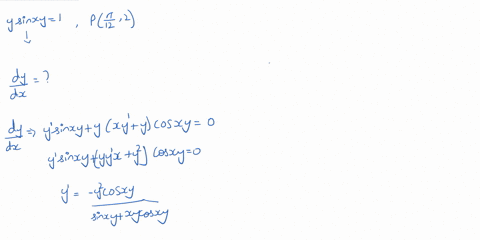 y sinxy = 1 , P(π/12, 2)
↓
dy/dx = ?
dy/dx ⇒ y' sinxy + y (xy' + y) cosxy = 0
y' sinxy + [yy'x + y²] cosxy = 0
y' = -y² cosxy / sinxy + xy cosxy